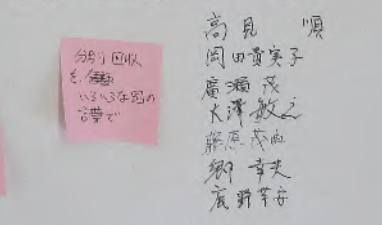 分別回収
を
いろいろな国の
言葉で
高見 順
岡田貴実子
廣瀬 茂
大澤敏之
藤原茂
郷 幸夫